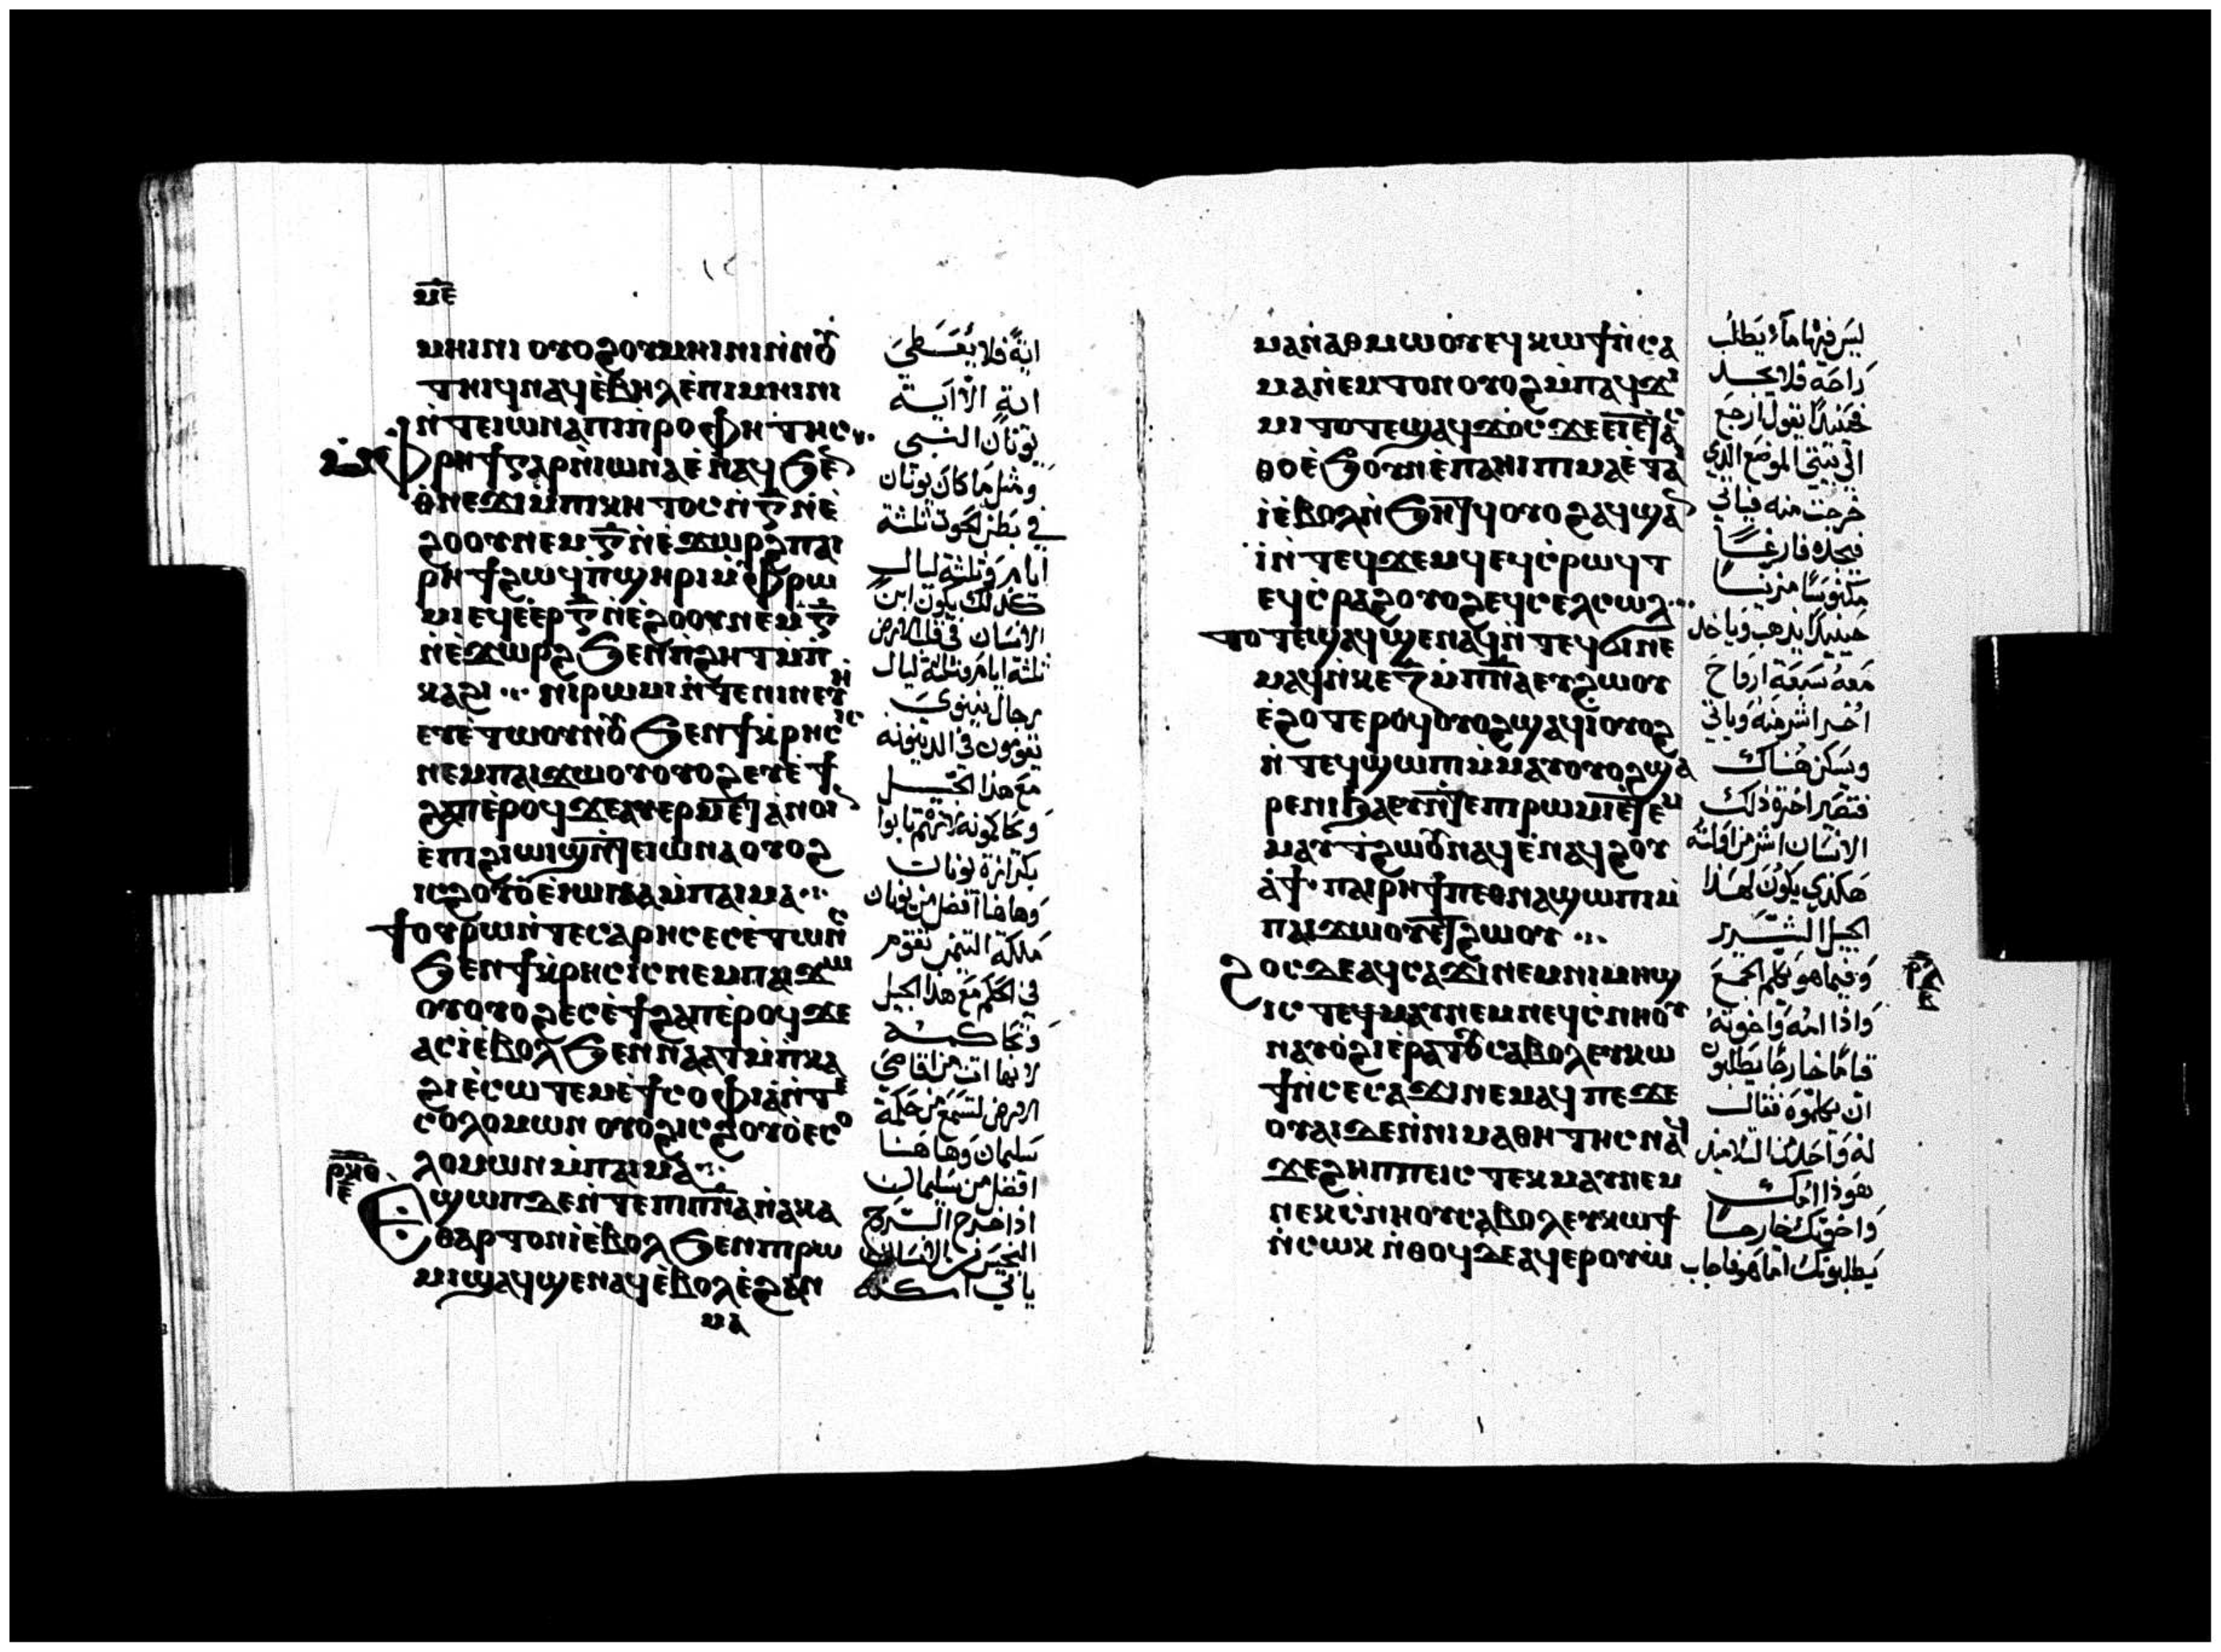 ⲙ̅ⲉ̅
ⲙⲏⲓⲛⲓ ⲟⲩⲟϩ ⲟⲩⲙⲏⲓⲛⲓ ⲛ̇ⲛⲟⲩ
ⲧⲏⲓϥ ⲛⲁϥ ⲉ̇ⲃⲏⲗ ⲉ̇ⲡⲓⲙⲏⲓⲛⲓ
ⲛ̇ⲧⲉ ⲓⲱⲛⲁ ⲡⲓⲡ̇ⲣⲟⲫⲏⲧⲏⲥ
ⲙ̇ⲫⲣⲏϯ ⲅⲁⲣ ⲛ̇ⲓⲱⲛⲁ ⲉ̇ⲛⲁϥ ϧⲉⲛ
ⲑⲛⲉϫⲓ ⲙ̇ⲡⲓⲕⲏⲧⲟⲥ ⲛ̇ⲅ̅ ⲛ̇ⲉ̇
ϩⲟⲟⲩ ⲛⲉⲙ ⲅ̅ ⲛ̇ⲉ̇ϫⲱⲣϩ ⲡⲁⲓ
ⲣⲏϯ ϩⲱϥ ⲡ̇ϣⲏⲣⲓ ⲙ̇ⲫⲣⲱ
ⲙⲓ ⲉϥⲉ̇ⲉⲣ ⲅ̅ ⲛ̇ⲉ̇ϩⲟⲟⲩ ⲛⲉⲙ ⲅ̅
ⲛ̇ⲉ̇ϫⲱⲣϩ ϧⲉⲛ ⲡ̇ϩⲏⲧ ⲙ̇ⲡ̇
ⲕⲁϩⲓ ⲛⲓⲣⲱⲙⲓ ⲛ̇ⲧⲉ ⲛⲓⲛⲉⲩⲏ
ⲉⲩⲉ̇ⲧⲱⲟⲩⲛⲟⲩ ϧⲉⲛ ϯⲕ̇ⲣⲏⲥⲓⲥ
ⲛⲉⲙ ⲡⲁⲓϫⲱⲟⲩ ⲟⲩⲟϩ ⲉⲩⲉ̇ϯ
ϩⲁⲡ ⲉ̇ⲣⲟϥ ϫⲉ ⲁⲩⲉⲣⲙⲉⲧⲁⲛⲟⲓⲛ
ⲉ̇ⲡϩⲓⲱⲓϣ ⲛ̇ⲧⲉ ⲓⲱⲛⲁ ⲟⲩⲟϩ
ⲓⲥ ϩⲟⲩⲟ̇ ⲉ̇ⲓⲱⲛⲁ ⲙ̇ⲡⲁⲓⲙⲁ
ϯⲟⲩⲣⲱ ⲛ̇ⲧⲉ ⲥⲁⲣⲏⲥ ⲉⲥⲉ̇ⲧⲱⲛⲥ
ϧⲉⲛ ϯⲕ̇ⲣⲏⲥⲓⲥ ⲛⲉⲙ ⲡⲁⲓϫⲱ
ⲟⲩ ⲟⲩⲟϩ ⲉⲥⲉ̇ϯϩⲁⲡ ⲉ̇ⲣⲟϥ ϫⲉ
ⲁⲥⲓ̇ ⲉ̇ⲃⲟⲗ ϧⲉⲛ ⲛⲁⲁⲩ ⲙ̇ⲡ̇ⲕⲁ
ϩⲓ ⲉ̇ⲥⲱⲧⲉⲙ ⲉ̇ϯⲥⲟⲫⲓⲁ̇ ⲛ̇ⲧⲉ
ⲥⲟⲗⲟⲙⲱⲛ ⲟⲩⲟϩ ⲓⲥ ϩⲟⲩⲟ̇ ⲉⲥⲟ
ⲗⲟⲙⲱⲛ ⲙ̇ⲡⲁⲓⲙⲁ
ⲣ̅ⲕ̅ⲑ̅
ⲉ̅
ⲉϣⲱⲡ ⲇⲉ ⲛ̇ⲧⲉ ⲡⲓⲡ̅ⲛ̅ⲁ̅ ⲛ̇ⲁⲕⲁ
ⲑⲁⲣⲧⲟⲛ ⲓ̇ ⲉ̇ⲃⲟⲗ ϧⲉⲛ ⲡⲓⲣⲱ
ⲙⲓ ϣⲁϥϣⲉⲛⲁϥ ⲉ̇ⲃⲟⲗ ⲉ̇ϩⲁⲛ
ⲙⲁ
اية فلا يُعطى
اية الا اية
يونان النبى
ومثل ما كان يونان
في بطن الحوت ثلثة
ايام وثلثة ليال
كذلك يكون ابن
الانسان في قلب الارض
ثلثة ايام وثلثة ليال
رجال نينوى
يقومون في الدينونة
مع هذا الجيل
ويحاكمونه لانهم تابوا
بكرازة يونان
وهاهنا افضل من يونان
ملكة التيمن تقوم
في الحكم مع هذا الجيل
وتحاكمه
لانها اتت من اقاصي
الارض لتسمع من حكمة
سليمان وهاهنا
افضل من سليمان
اذا خرج الروح
النجس من الانسان
ياتي امكنة
ⲙⲁ ⲛ̇ⲁⲑⲙⲱⲟⲩ ⲉϥⲕⲱϯ ⲛ̇ⲥⲁ
ⲙⲁ ⲛ̇ⲉⲙⲧⲟⲛ ⲟⲩⲟϩ ⲙ̇ⲡⲁϥϫⲓ
ⲙⲓ ⲧⲟⲧⲉ ϣⲁϥϫⲟⲥ ϫⲉ ⲉⲓⲉ̇ⲧⲁⲥ
ⲑⲟ ⲉ̇ϧⲟⲩⲛ ⲉ̇ⲡⲁⲏⲓ ⲡⲓⲙⲁ ⲉ̇ⲧⲁⲓ
ⲓ̇ ⲉ̇ⲃⲟⲗ ⲛ̇ϧⲏⲧϥ ⲟⲩⲟϩ ⲁϥϣⲁⲛ
ⲓ̇ ⲛ̇ⲧⲉϥϫⲉⲙϥ ⲉϥⲥ̇ⲣⲱϥⲧ
ⲉϥⲥ̇ⲣⲁϩ ⲟⲩⲟϩ ⲉϥⲥⲉⲗⲥⲱⲗ
ⲧⲟⲧⲉ ϣⲁϥϣⲉⲛⲁϥ ⲛ̇ⲧⲉϥϭⲓ ⲛⲉ
ⲙⲁϥ ⲛ̇ⲕⲉ ⲍ̅ ⲙ̇ⲡ̅ⲛ̅ⲁ̅ ⲉⲩϩⲱⲟⲩ
ⲉ̇ϩⲟⲧⲉⲣⲟϥ ⲟⲩⲟϩ ϣⲁϥⲓ̇ ⲟⲩⲟϩ
ⲛ̇ⲧⲉϥϣⲱⲡⲓ ⲙ̇ⲙⲁⲩ ⲟⲩⲟϩ ϣⲁ
ⲣⲉ ⲛⲓϧⲁⲉⲩ ⲛ̇ⲧⲉ ⲡⲓⲣⲱⲙⲓ ⲉⲧⲉⲙ
ⲙⲁⲩ ϯϩⲱⲟⲩ ⲛⲁϥ ⲉ̇ⲛⲁϥϩⲟⲩ
ⲁ̇ϯ ⲡⲁⲓⲣⲏϯ ⲡⲉⲑⲛⲁϣⲱⲡⲓ ⲙ̇
ⲡⲁⲓϫⲱⲟⲩ ⲉⲧϩⲱⲟⲩ
ϩⲟⲥ ⲇⲉ ⲁϥⲥⲁϫⲓ ⲛⲉⲙ ⲛⲓⲙⲏϣ
ⲓⲥ ⲧⲉϥⲙⲁⲩ ⲛⲉⲙ ⲛⲉϥⲥ̇ⲛⲏⲟⲩ
ⲛⲁⲩⲟ̇ϩⲓ ⲉ̇ⲣⲁⲧⲟⲩ ⲥⲁⲃⲟⲗ ⲉⲩⲕⲱ
ϯ ⲛ̇ⲥⲉⲥⲁϫⲓ ⲛⲉⲙⲁϥ ⲡⲉϫⲉ
ⲟⲩⲁⲓ ⲇⲉ ⲛ̇ⲛⲓⲙⲁⲑⲏⲧⲏⲥ ⲛⲁϥ
ϫⲉ ϩⲏⲡⲡⲉ ⲓⲥ ⲧⲉⲕⲙⲁⲩ ⲛⲉⲙ
ⲛⲉⲕⲥ̇ⲛⲏⲟⲩ ⲥⲁⲃⲟⲗ ⲉⲩⲕⲱϯ
ⲛ̇ⲥⲱⲕ ⲛ̇ⲑⲟϥ ⲇⲉ ⲁϥⲉⲣⲟⲩⲱ̇
ليس فيها ماء يطلب
راحة فلا يجد
فحينيذًا يقول ارجع
الى بيتي الموضع الذي
خرجت منه فياتي
فيجده فارغًا
مكنوسًا مزينًا
حينيذًا يذهب وياخذ
معه سبعة ارواح
اخر اشر منه وياتي
ويسكن هناك
فتصير اخرة ذلك
الانسان اشر من اوليته
هكذي يكون لهذا
الجيل الشرير
وفيما هو يكلم الجمع
واذا امه واخوته
قيامًا خارجًا يطلبون
ان يكلموه فقال
له واحد من التلاميذ
هوذا امك
واخوتك خارجًا
يطلبونك اما هو فاجاب